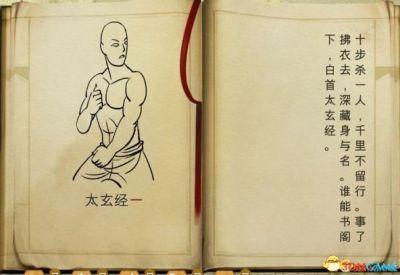 太玄经一
十步杀一人，千里不留行。事了
拂衣去，深藏身与名。谁能书阁
下，白首太玄经。